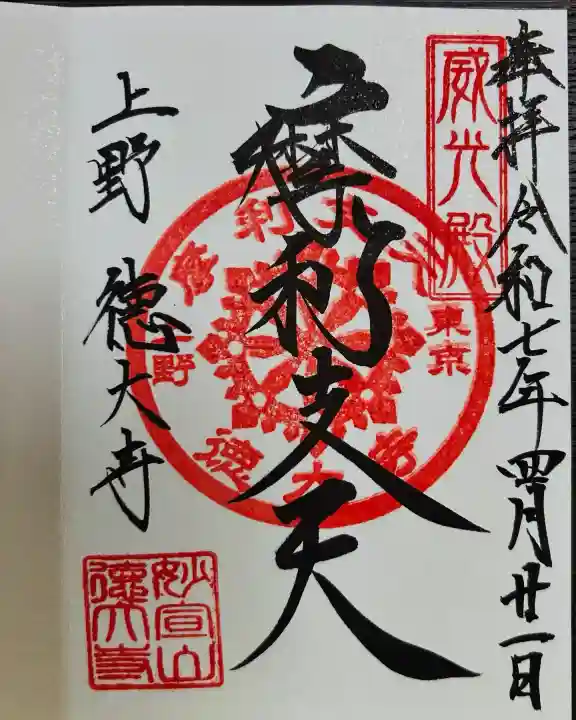 奉拝 令和七年四月廿一日
威光殿
摩利支天
東京
上野
徳大寺
上野 徳大寺
妙宣山
徳大寺